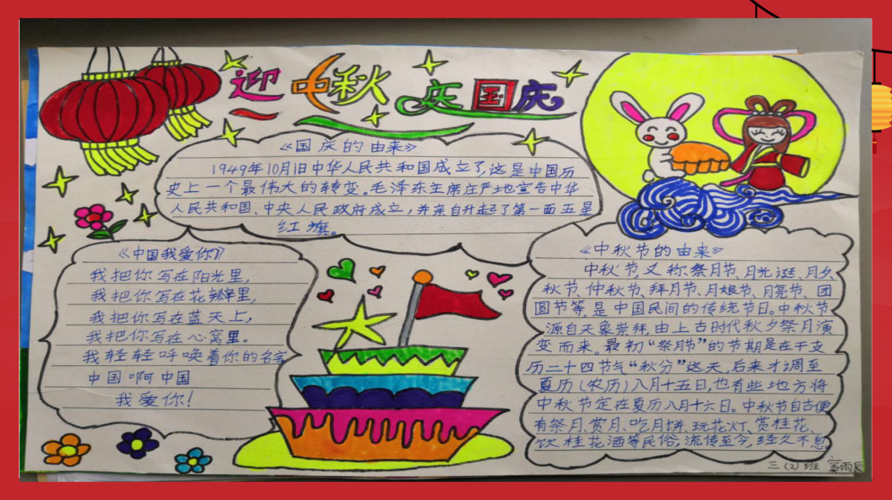 迎中秋 庆国庆
《国庆的由来》
1949年10月1日中华人民共和国成立了,这是中国历
史上一个最伟大的转变。毛泽东主席庄严地宣告中华
人民共和国、中央人民政府成立,并亲自升起了第一面五星
红旗。
《中国我爱你》
我把你写在阳光里,
我把你写在花瓣里,
我把你写在蓝天上,
我把你写在心窝里。
我轻轻呼唤着你的名字
中国啊中国
我爱你!
《中秋节的由来》
中秋节又称祭月节、月光诞、月夕
秋节、仲秋节、拜月节、月娘节、月亮节、团
圆节等,是中国民间的传统节日。中秋节
源自天象崇拜,由上古时代秋夕祭月演
变而来。最初“祭月节”的节期是在干支
历二十四节气“秋分”这天,后来才调至
夏历(农历)八月十五日,也有些地方将
中秋节定在夏历八月十六日。中秋节自古便
有祭月、赏月、吃月饼、玩花灯、赏桂花、
饮桂花酒等民俗,流传至今,经久不息
三(2)班 雨辰